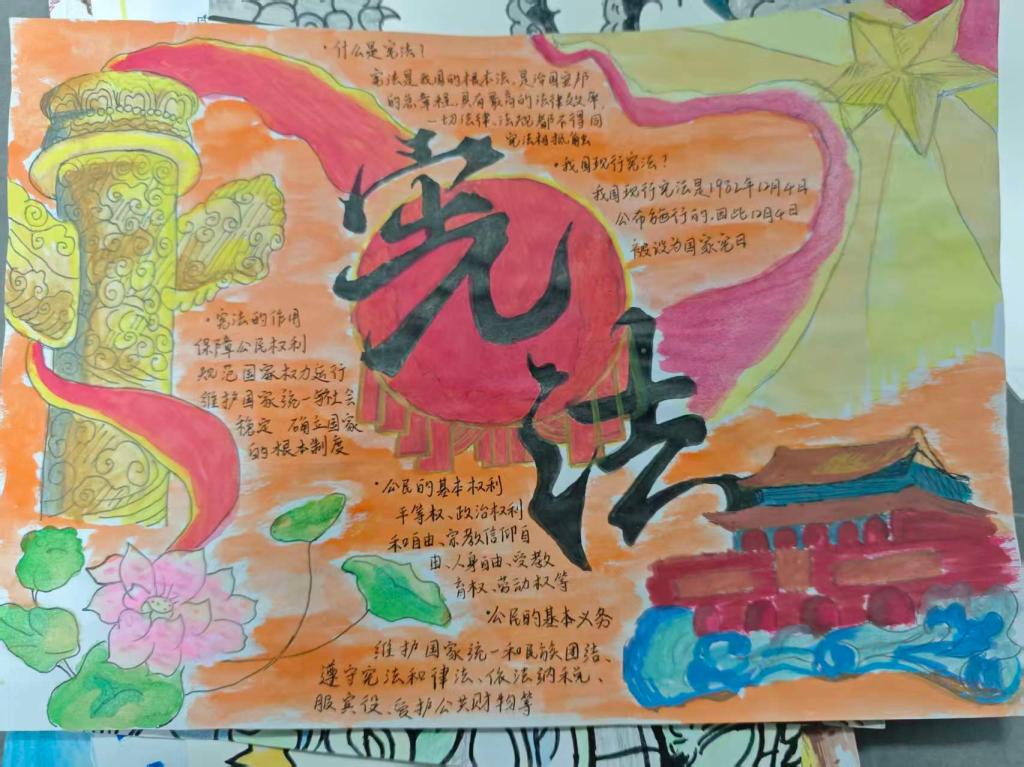 ·什么是宪法?
宪法是我国的根本法,是治国安邦
的总章程,具有最高的法律效率,
一切法律、法规都不得同
宪法相抵触
·我国现行宪法?
我国现行宪法是1982年12月4日
公布施行的,因此12月4日
被设为国家宪日
宪法
·宪法的作用
保障公民权利
规范国家权力运行
维护国家统一和社会
稳定 确立国家
的根本制度
·公民的基本权利
平等权、政治权利
和自由、宗教信仰自
由、人身自由、受教
育权、劳动权等
·公民的基本义务
维护国家统一和民族团结、
遵守宪法和律法、依法纳税、
服兵役、爱护公共财物等